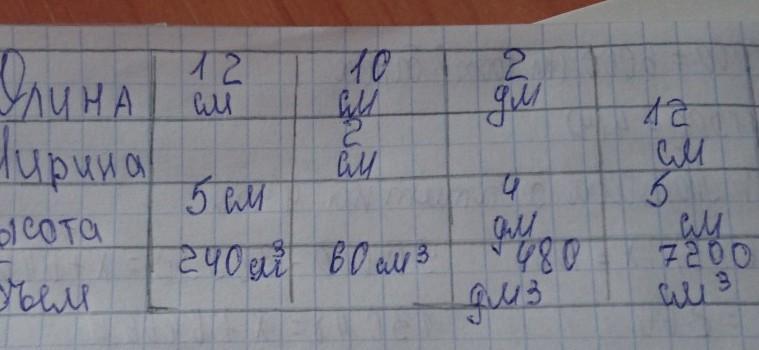 Длина 12 см 10 см 2 дм
Ширина 2 см 12 см
ысота 5 см 4 дм 5 см
ъем 240 см³ 60 см³ 480 дм³ 7200 см³